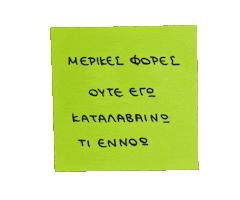 ΜΕΡΙΚΕΣ ΦΟΡΕΣ
ΟΥΤΕ ΕΓΩ
ΚΑΤΑΛΑΒΑΙΝΩ
ΤΙ ΕΝΝΟΩ